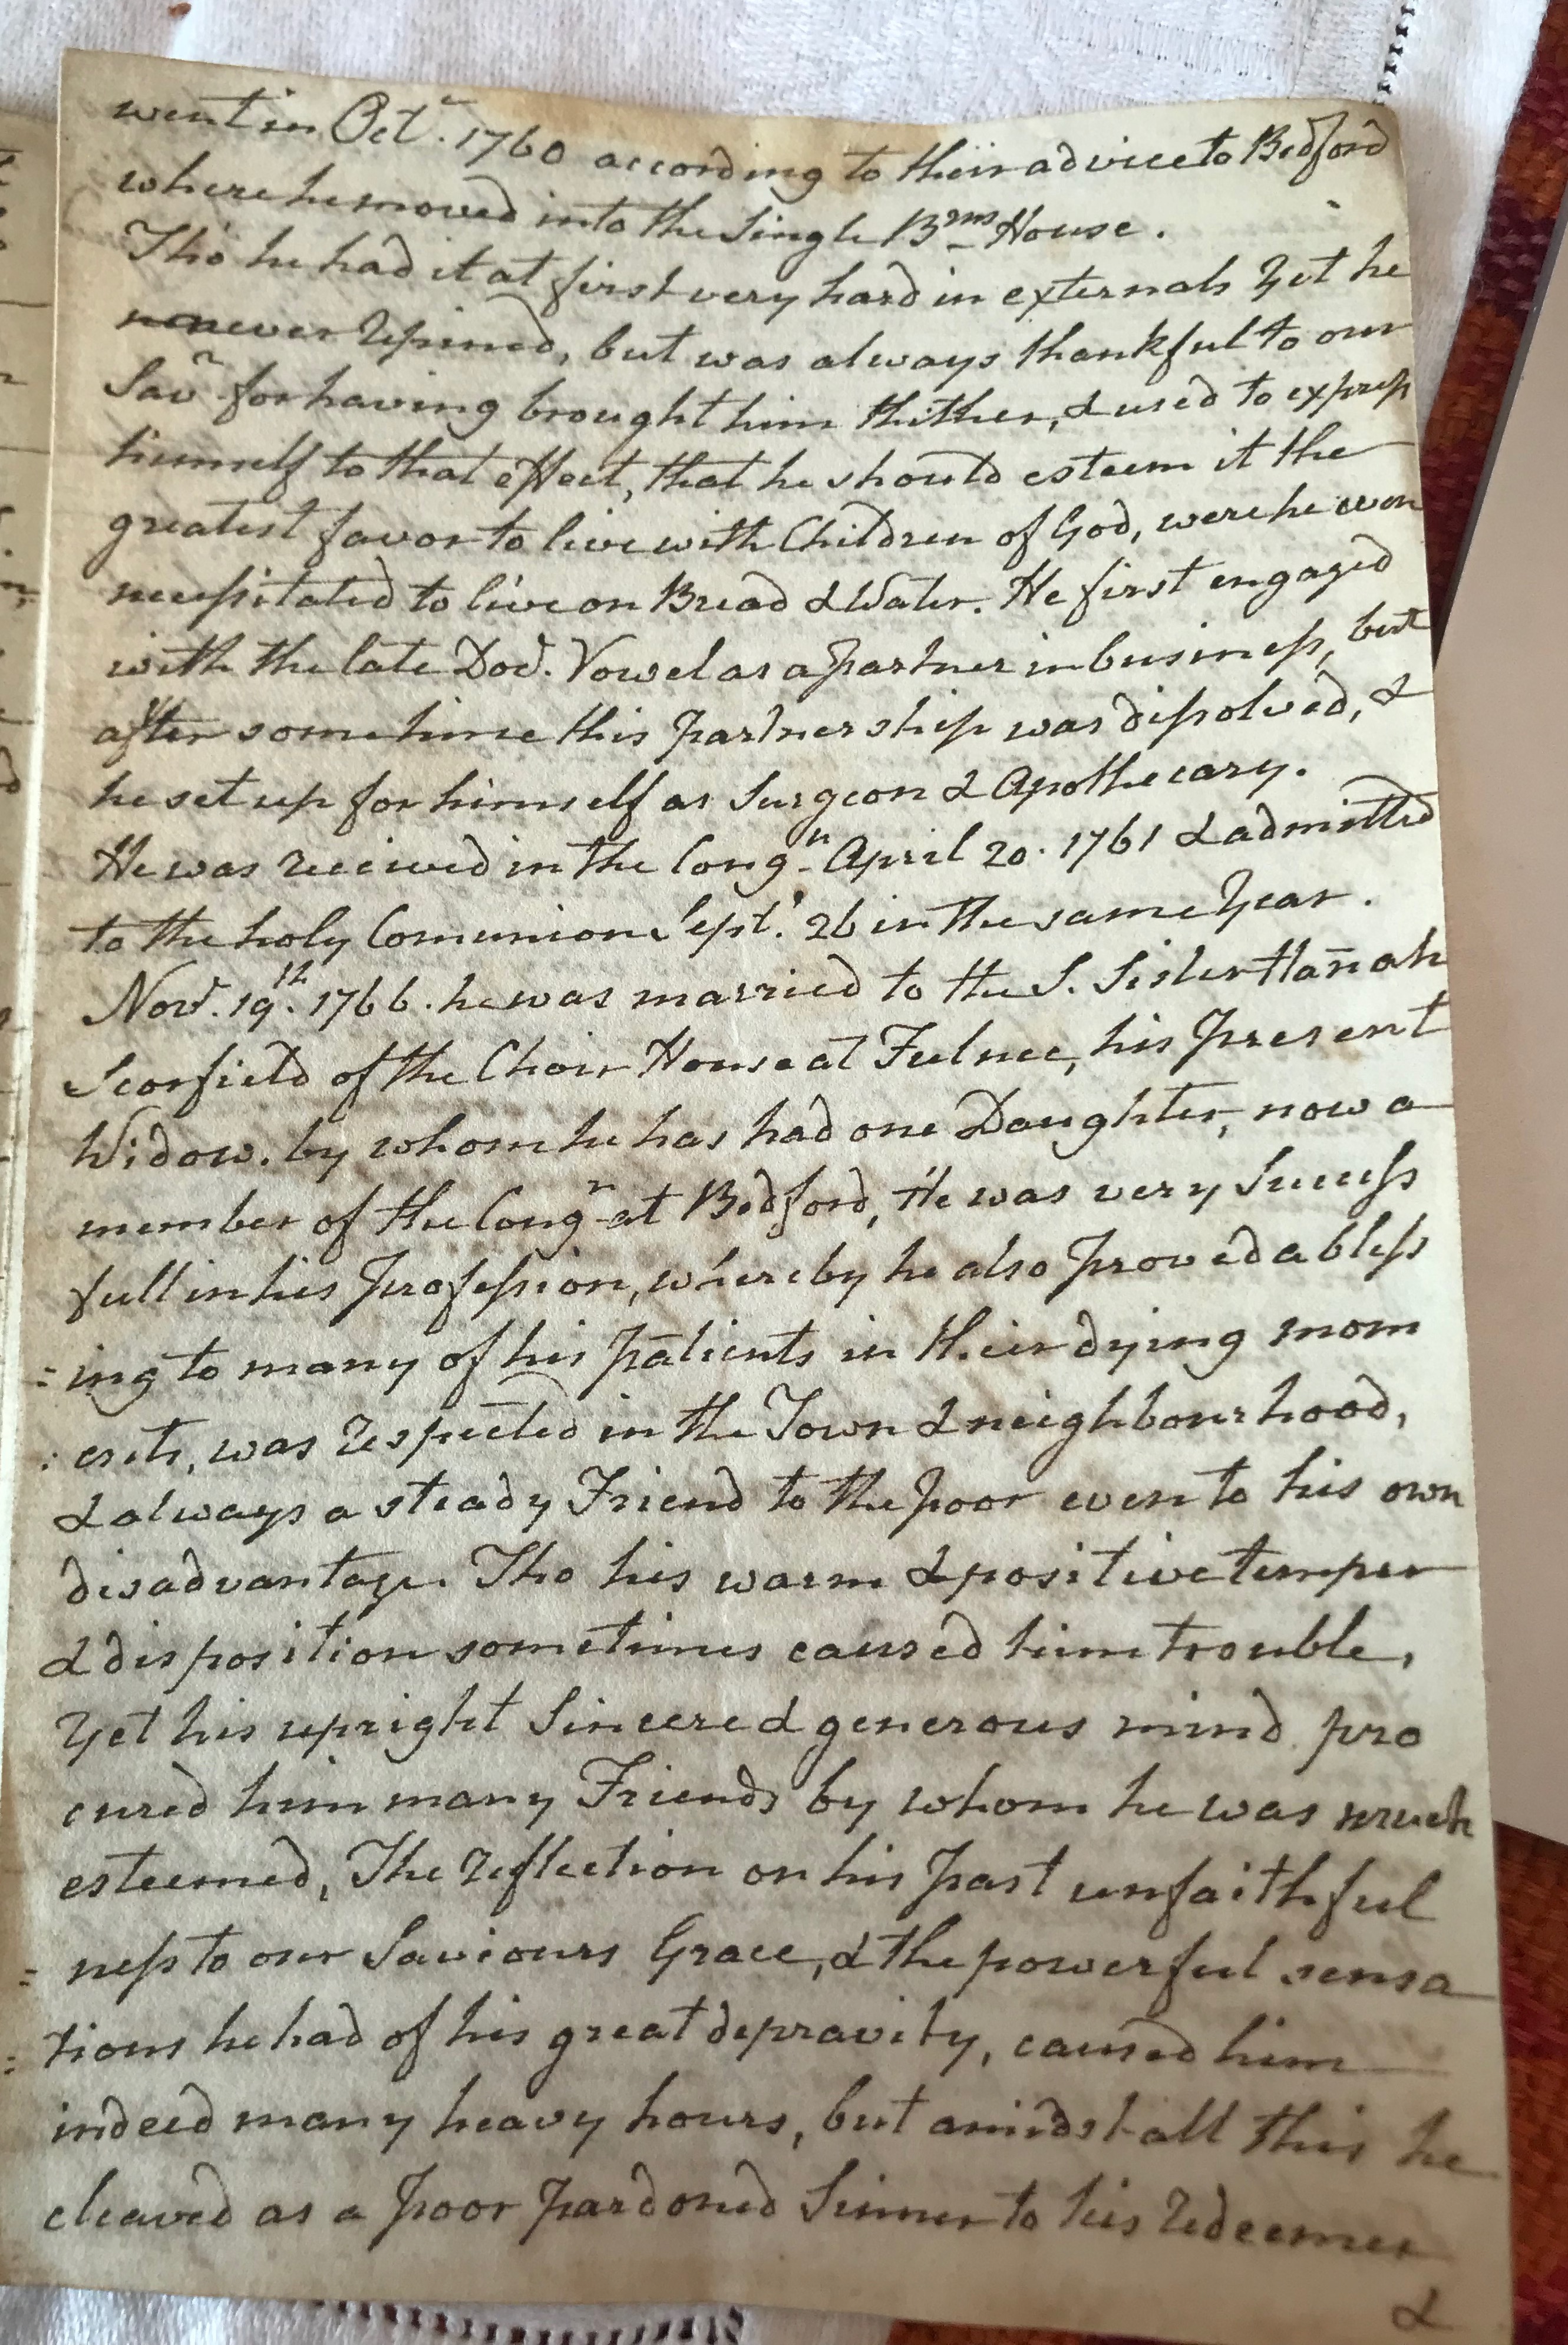 went in Octr. 1760 according to their advice to Bedford
where he moved into the Single Brns House.
Tho' he had it at first very hard in externals Yet he
never repined, but was always thankful to our
Savr for having brought him thither, & used to express
himself to that effect, that he should esteem it the
greatest favor to live with Children of God, were he even
necessitated to live on Bread & Water. He first engaged
with the late Doc. Vowel as a partner in business, but
after sometime this partnership was dissolved, &
he set up for himself as Surgeon & Apothecary.
He was received in the Congn April 20. 1761 & admitted
to the holy Comunion Sept. 26 in the same Year.
Nov. 19th. 1766. he was married to the S. Sister Han̄ah
Scorfield of the Choir House at Fulnec, his Present
Widow. by whom he has had one Daughter, now a
member of the Congn at Bedford, He was very Success
full in his Profession, whereby he also proved a bless
=ing to many of his patients in their dying mom
:ents, was respected in the Town & neighbourhood,
& always a steady Friend to the poor even to his own
disadvantage. Tho his warm & positive temper
& disposition sometimes caused him trouble,
Yet his upright Sincere & generous mind pro
cured him many Friends by whom he was much
esteemed, The reflection on his Past unfaithful
=ness to our Saviours Grace, & the powerful sensa
:tions he had of his great depravity, caused him
indeed many heavy hours, but amidst all this he
cleaved as a Poor Pardoned Sinner to his redeemer
&